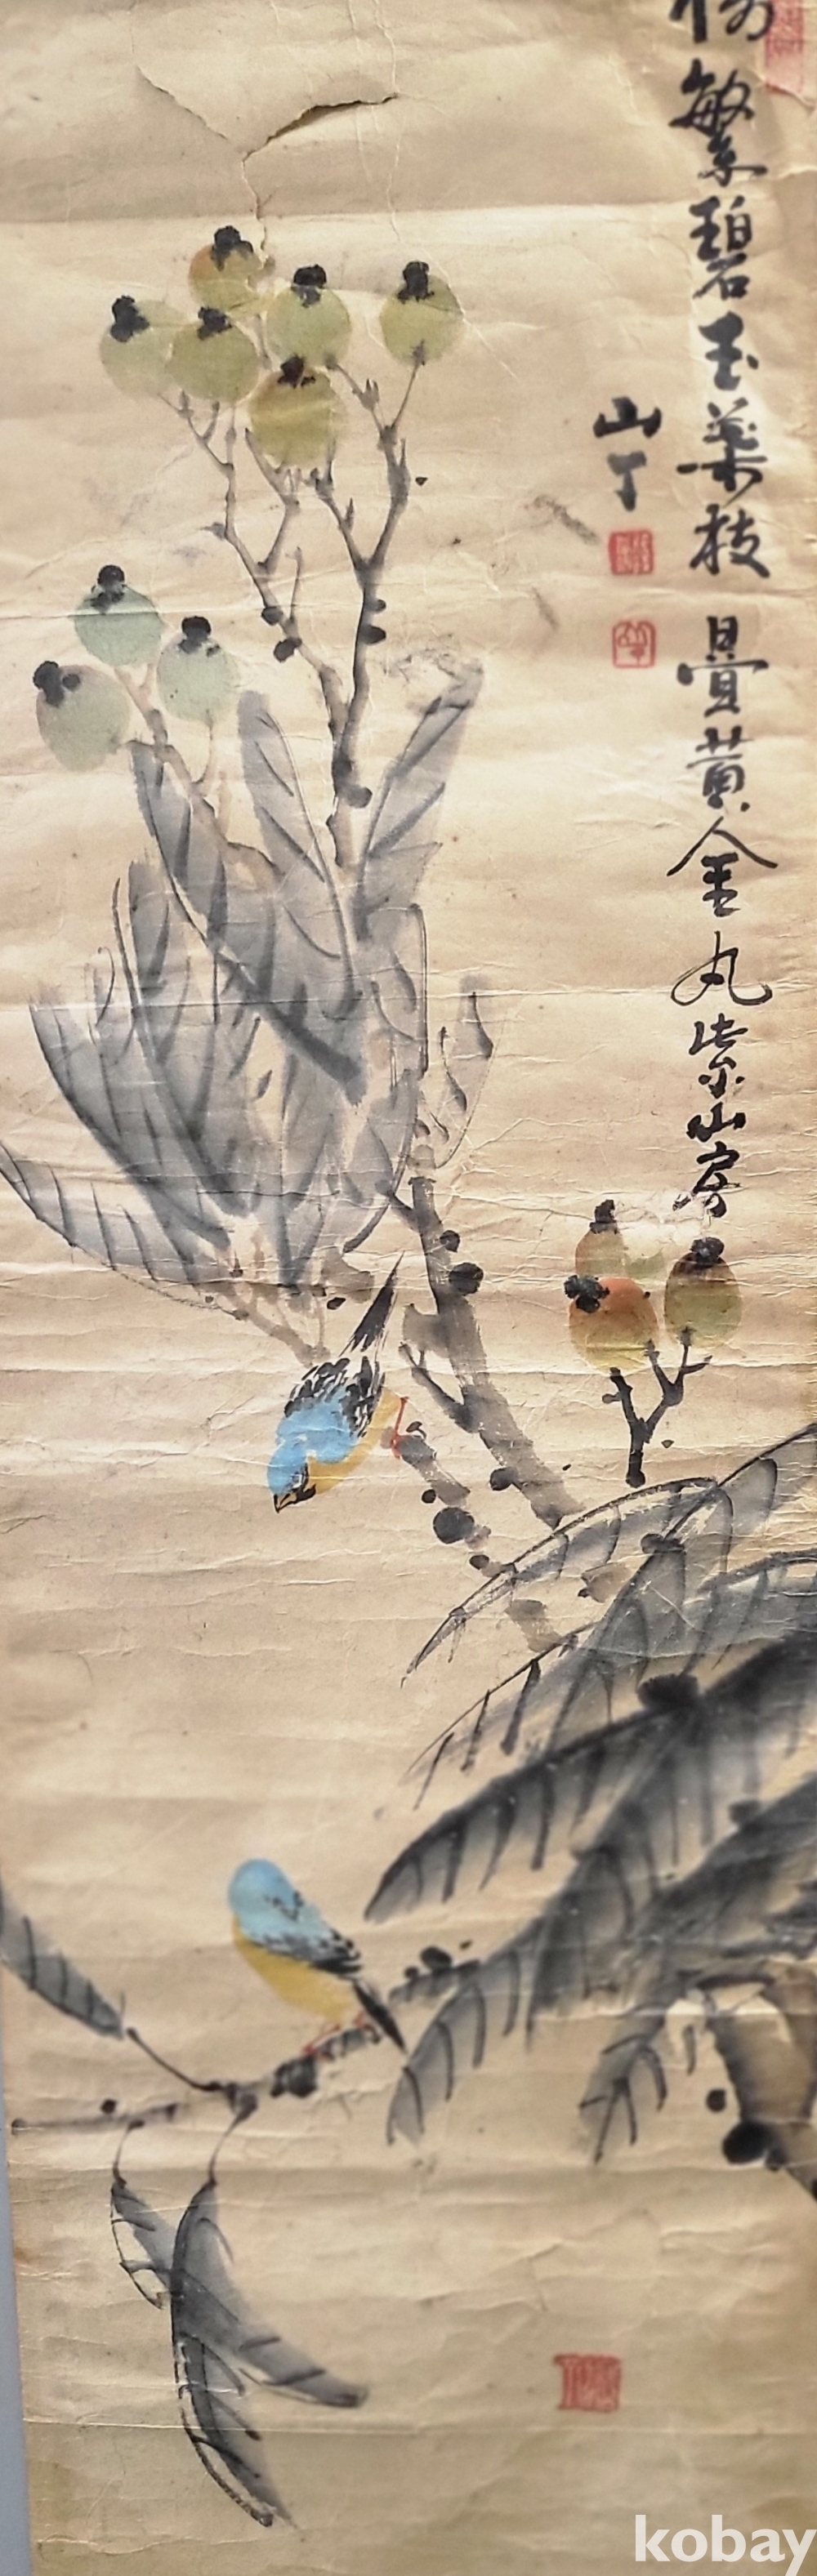 繁碧玉葉枝疊黃金丸紫山房
山丁
kobay